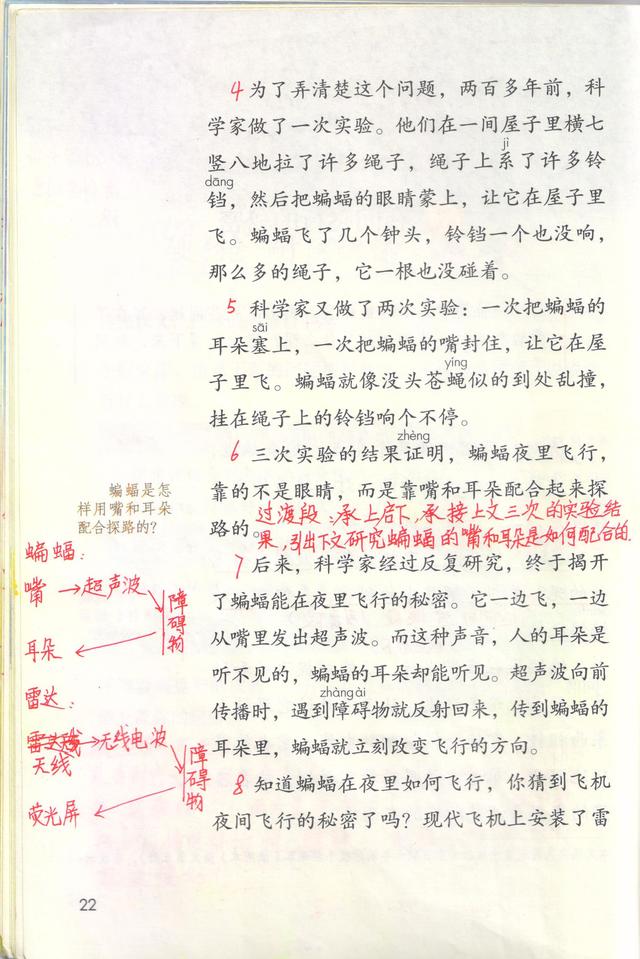 4 为了弄清楚这个问题，两百多年前，科
学家做了一次实验。他们在一间屋子里横七
jì
竖八地拉了许多绳子，绳子上系了许多铃
dāng
铛，然后把蝙蝠的眼睛蒙上，让它在屋子里
飞。蝙蝠飞了几个钟头，铃铛一个也没响，
那么多的绳子，它一根也没碰着。
5 科学家又做了两次实验：一次把蝙蝠的
sāi
耳朵塞上，一次把蝙蝠的嘴封住，让它在屋
yíng
子里飞。蝙蝠就像没头苍蝇似的到处乱撞，
挂在绳子上的铃铛响个不停。
zhèng
6 三次实验的结果证明，蝙蝠夜里飞行，
靠的不是眼睛，而是靠嘴和耳朵配合起来探
路的。
过渡段：承上启下，承接上文三次的实验结
果，引出下文研究蝙蝠的嘴和耳朵是如何配合的.
7 后来，科学家经过反复研究，终于揭开
了蝙蝠能在夜里飞行的秘密。它一边飞，一边
从嘴里发出超声波。而这种声音，人的耳朵是
听不见的，蝙蝠的耳朵却能听见。超声波向前
zhàng ài
传播时，遇到障碍物就反射回来，传到蝙蝠的
耳朵里，蝙蝠就立刻改变飞行的方向。
8 知道蝙蝠在夜里如何飞行，你猜到飞机
夜间飞行的秘密了吗？现代飞机上安装了雷
蝙蝠是怎
样用嘴和耳朵
配合探路的？
蝙蝠：
嘴→超声波
障碍物
耳朵
雷达：
天线→无线电波
障碍物
荧光屏
22